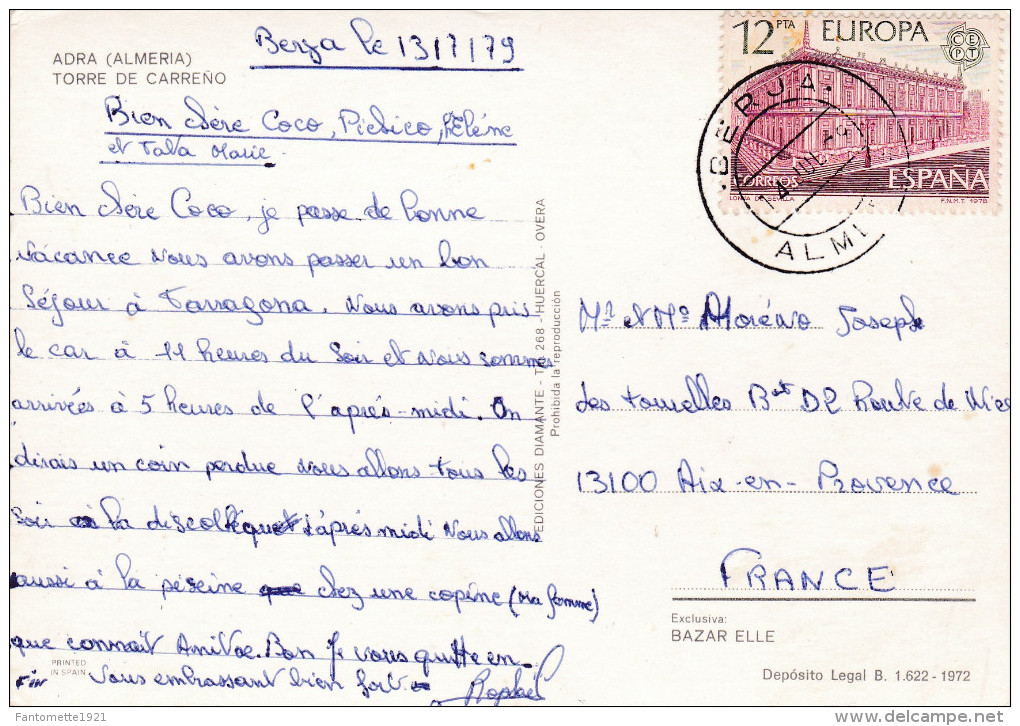 ADRA (ALMERIA)
TORRE DE CARREÑO
Berja le 13/7/79
Bien chère Coco, Pichico, Hélène
et Tata Marie
Bien chère Coco, je passe de bonne
vacance nous avons passer un bon
Séjour à Tarragona. Nous avons pris
le car à 11 heures du soir et nous sommes
arrivées à 5 heures de l'après-midi. On
dirais un coin perdue nous allons tous les
soir à la discothèque l'après midi nous allons
aussi à la piscine chez une copine (ma femme)
que connait Anitoe. Bon je vous quitte en
Vous embrassant bien fort
Raphaël
Fin
PRINTED
IN SPAIN
EDICIONES DIAMANTE - Tel. 268 - HUERCAL - OVERA
Prohibida la reproducción
12 PTA EUROPA
CEPT
CORREOS ESPAÑA
LONJA DE SEVILLA F.N.M.T. 1978
BERJA
ALME
Mr et Me Moréno Joseph
les tourelles Bat D2 Route de Nice
13100 Aix-en-Provence
FRANCE
Exclusiva:
BAZAR ELLE
Depósito Legal B. 1.622 - 1972
Fantomette1921
delcampe.net